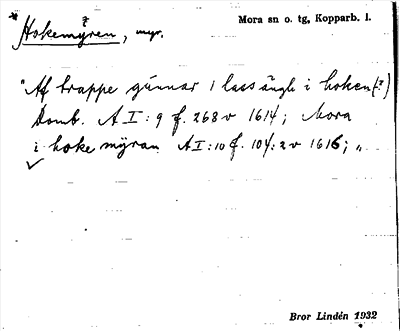 * Hokemÿren, myr.
?
Mora sn o. tg, Kopparb. l.
"Af trappe gunnar 1 lass ängh i hoken (?)
Domb. A I: 9 f. 268 v 1614; Mora
i hoke mÿran A I: 10 f. 104: 2 v 1616; "
Bror Lindén 1932